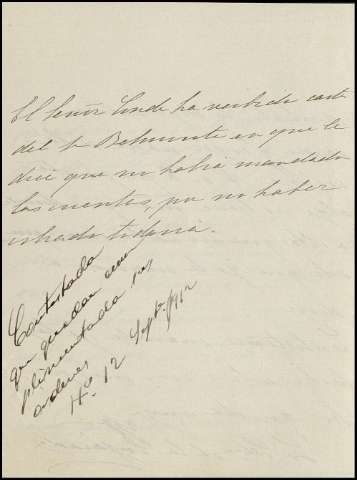 El Señor Conde ha recibido carta
del Sr Belmonte en que le
dice que no había mandado
las cuentas, por no haber
cobrado todavia.
Contestada
que quedan cum
plimentadas sus
ordenes
Hº 12 Septe. 1912